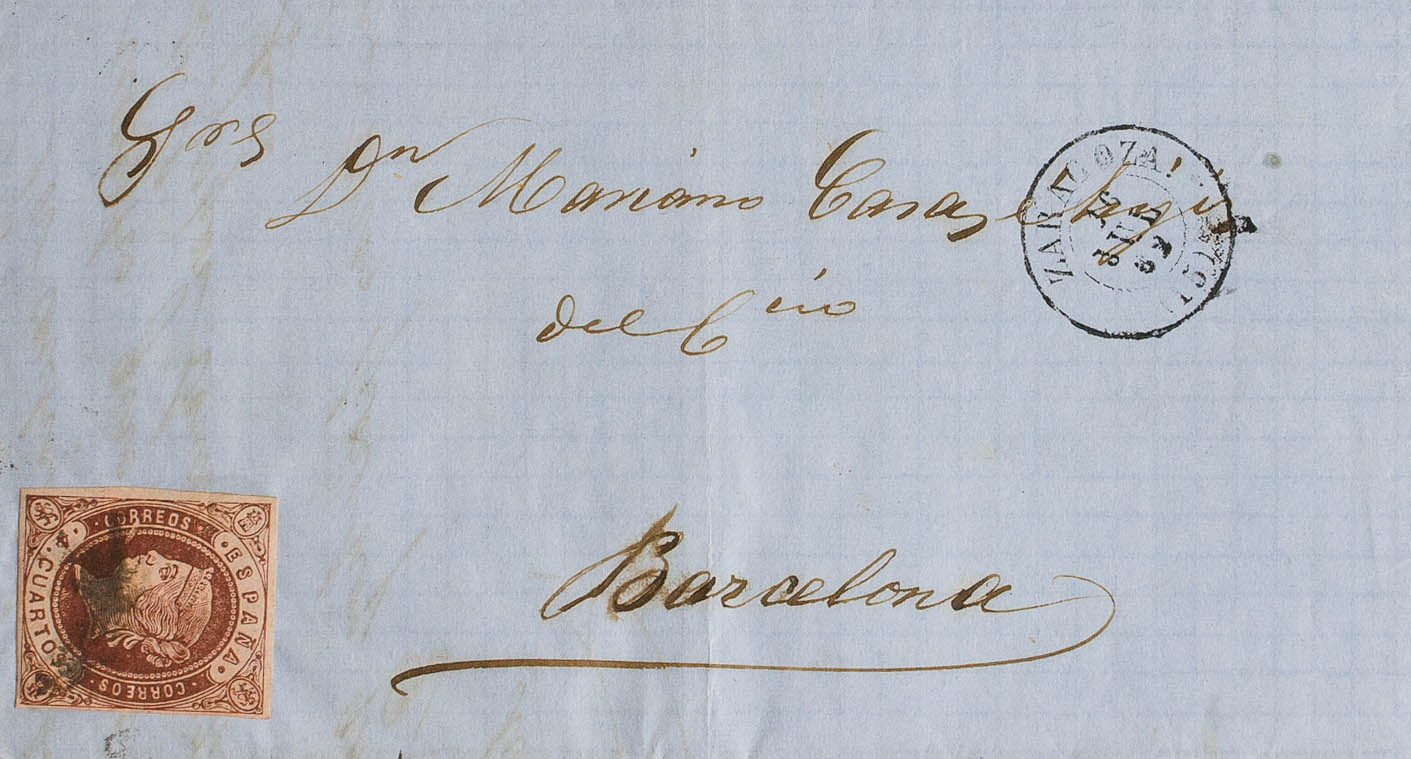 Sres
Dn Mariano Casas e hijos
del Cio
ZARAGOZA
JUL
Barcelona
CORREOS
ESPAÑA
4 CUARTOS
CORREOS